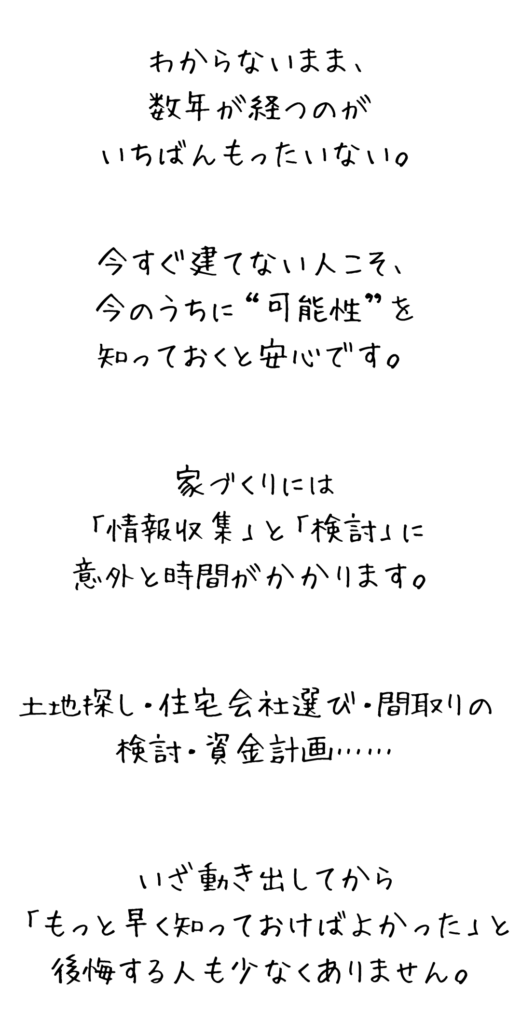 わからないまま、
数年が経つのが
いちばんもったいない。
今すぐ建てない人こそ、
今のうちに“可能性”を
知っておくと安心です。
家づくりには
「情報収集」と「検討」に
意外と時間がかかります。
土地探し・住宅会社選び・間取りの
検討・資金計画……
いざ動き出してから
「もっと早く知っておけばよかった」と
後悔する人も少なくありません。